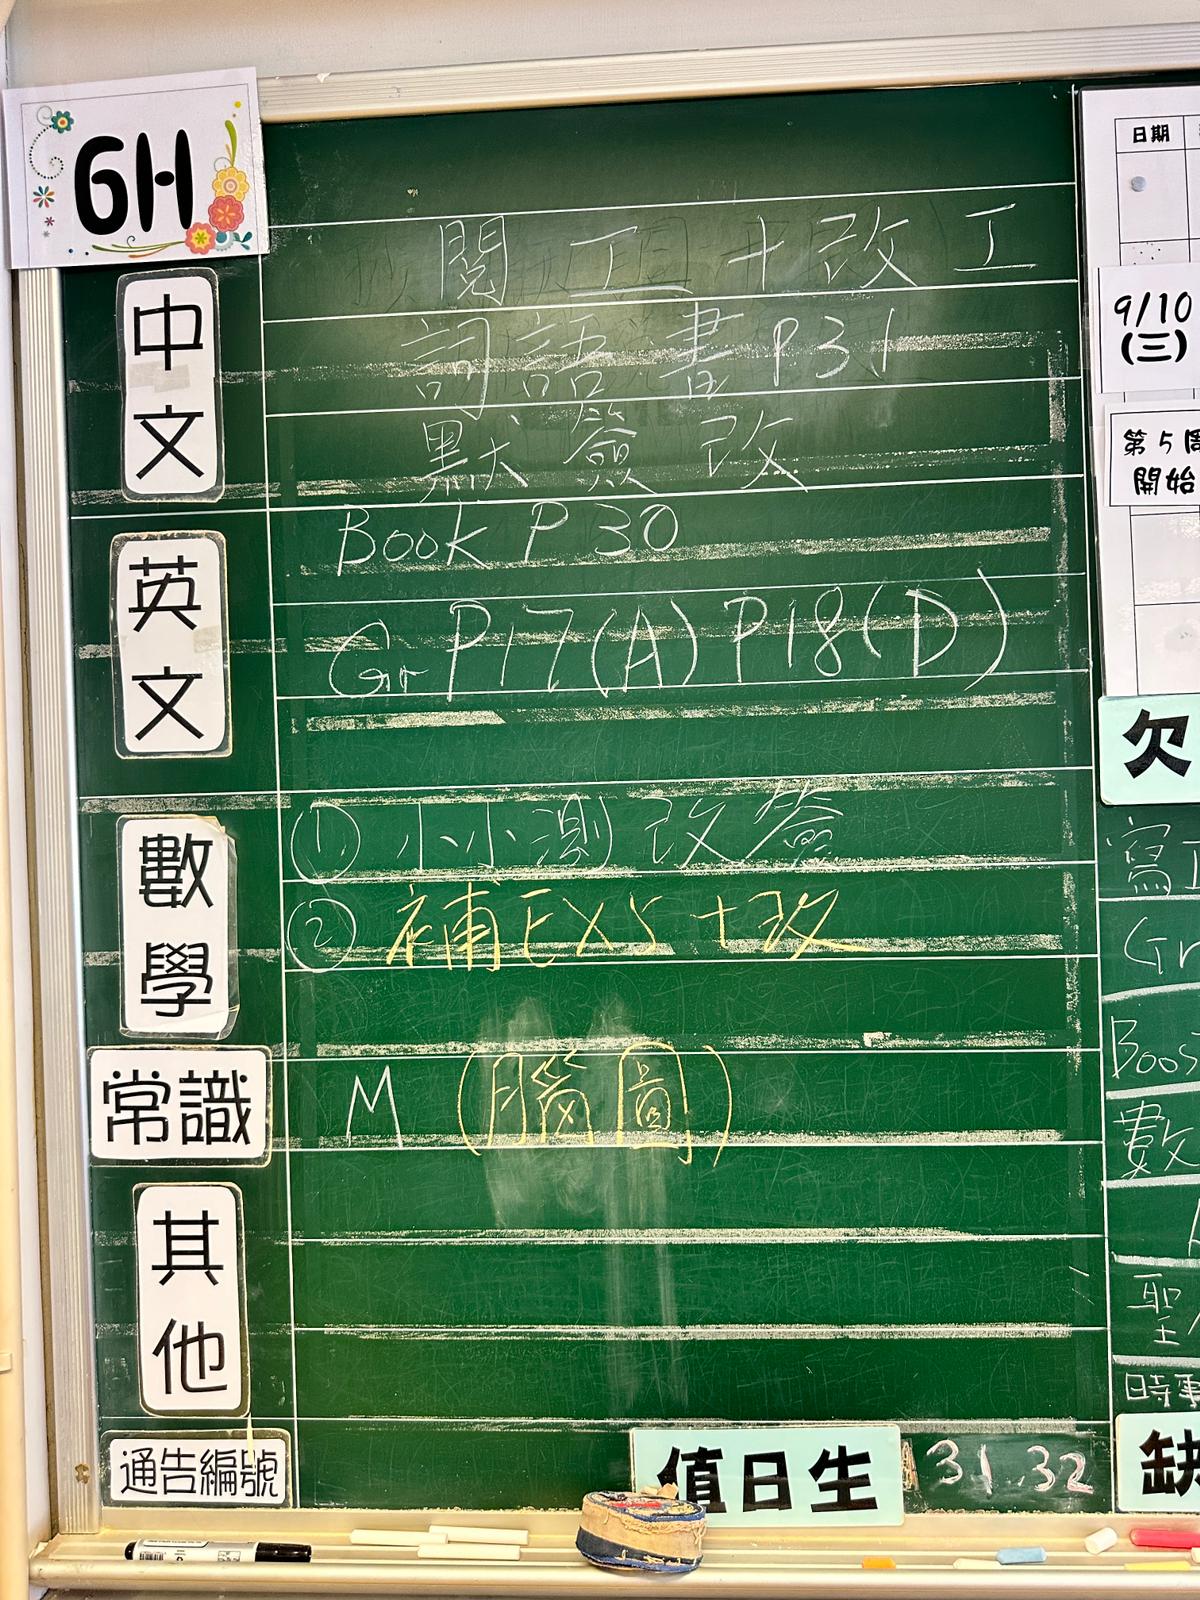 6H
中文
閱工+改工
詞語書 P31
默簽改
英文
Book P 30
Gr P17(A) P18(D)
數學
① 小小測改簽
② 補EX5+改
常識
M (腦圖)
其他
通告編號
值日生 31.32
日期
9/10
(三)
第5周
開始
欠
寫工
Gr
Boos
數
聖
時事
缺